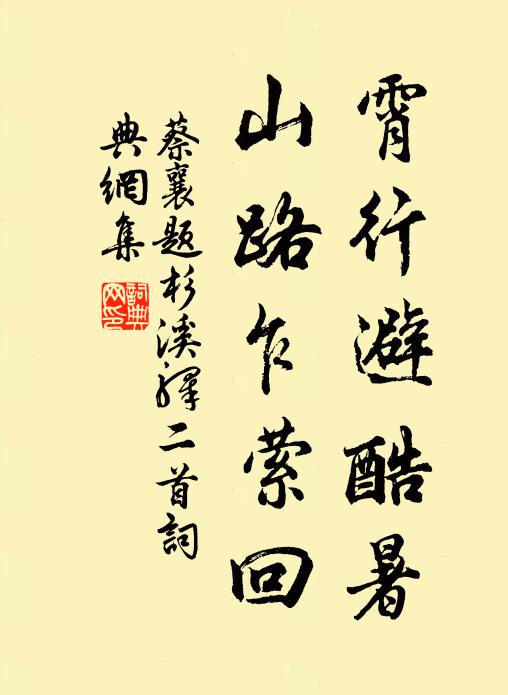 霄行避酷暑
山路乍萦回
蔡襄题杉溪驿二首詞
典網集
詞典网印